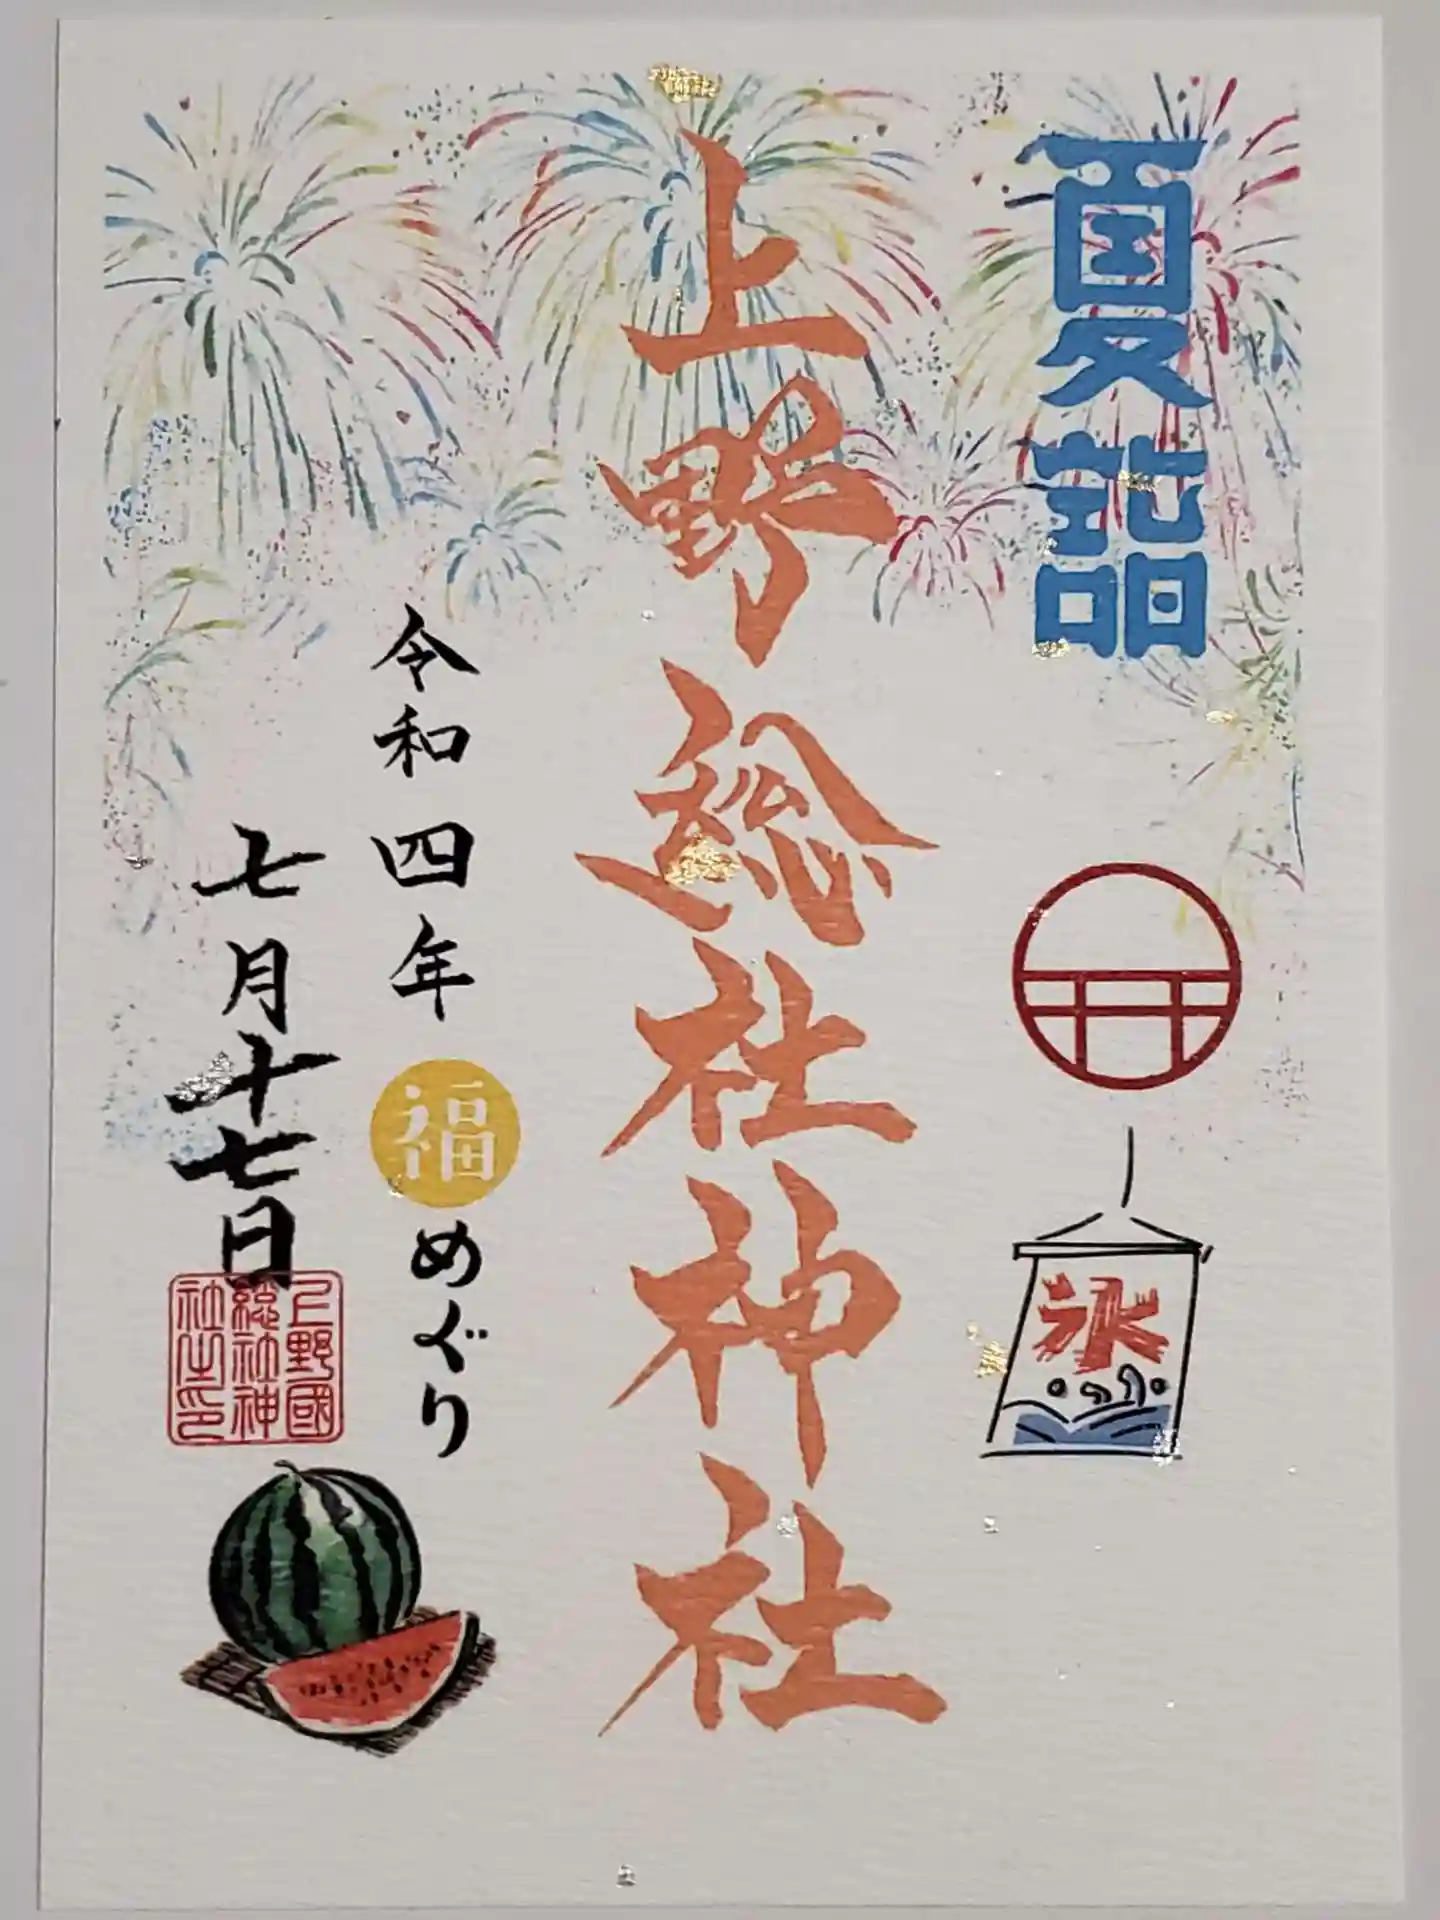 夏詣
氷
上野総社神社
令和四年
福めぐり
七月十七日
上野國
総社神
社之印